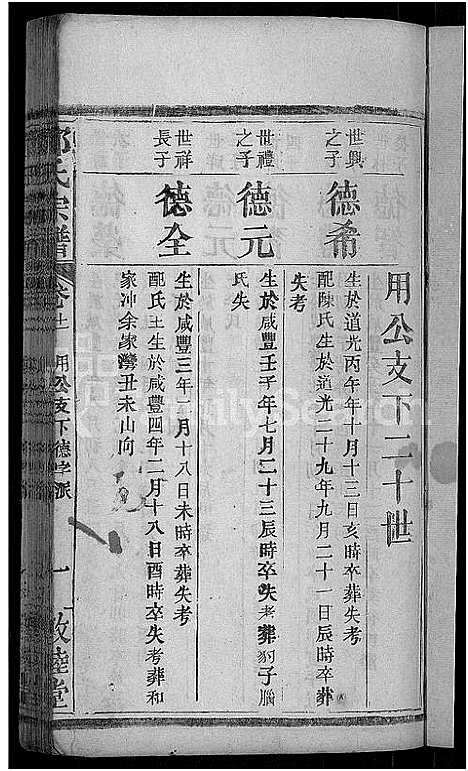 用公支下二十世
世興
之子
德希
生於道光丙午年十月十三日亥時卒葬失考
配陳氏生於道光二十九年九月二十一日辰時卒葬
失考
世禮
之子
德元
生於咸豐壬子年七月二十三辰時卒失考葬豹子腦
氏失
世祥
長子
德全
生於咸豐三年 月十八日未時卒葬失考
配氏王生於咸豐四年二月十八日酉時卒失考葬和
家冲余家灣丑未山向
氏宗譜
用公支下德字派
一
敦睦堂